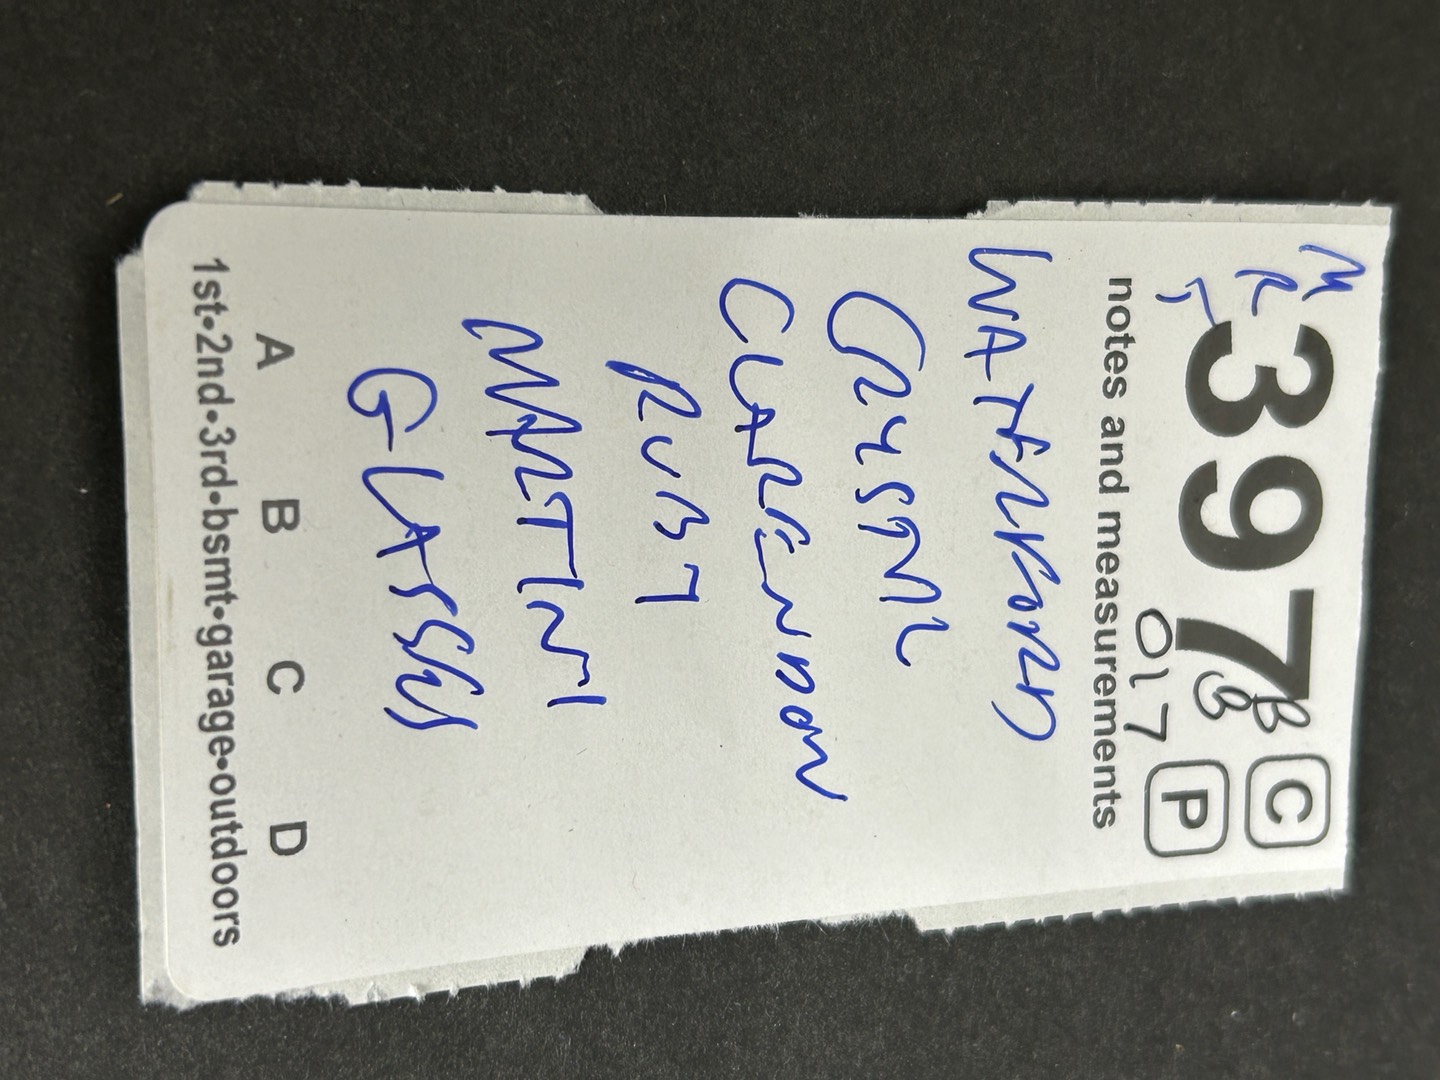 M
R
T
397
B
B
C
P
017
notes and measurements
WATERFORD
CRYSTAL
CLARENDON
RUBY
MARTINI
GLASSES
A B C D
1st•2nd•3rd•bsmt•garage•outdoors